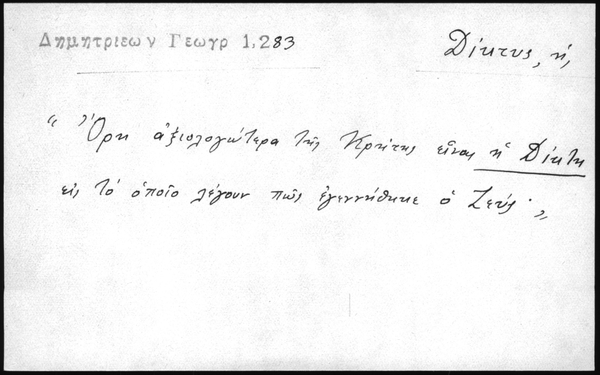 Δημητριεων Γεωγρ 1,283
Δίκτυς, ἡ,
“ Ὄρη ἀξιολογώτερα τῆς Κρήτης εἶναι ἡ Δίκτη
εἰς τό ὁποῖο λέγουν πῶς ἐγεννήθηκε ὁ Ζεύς· „